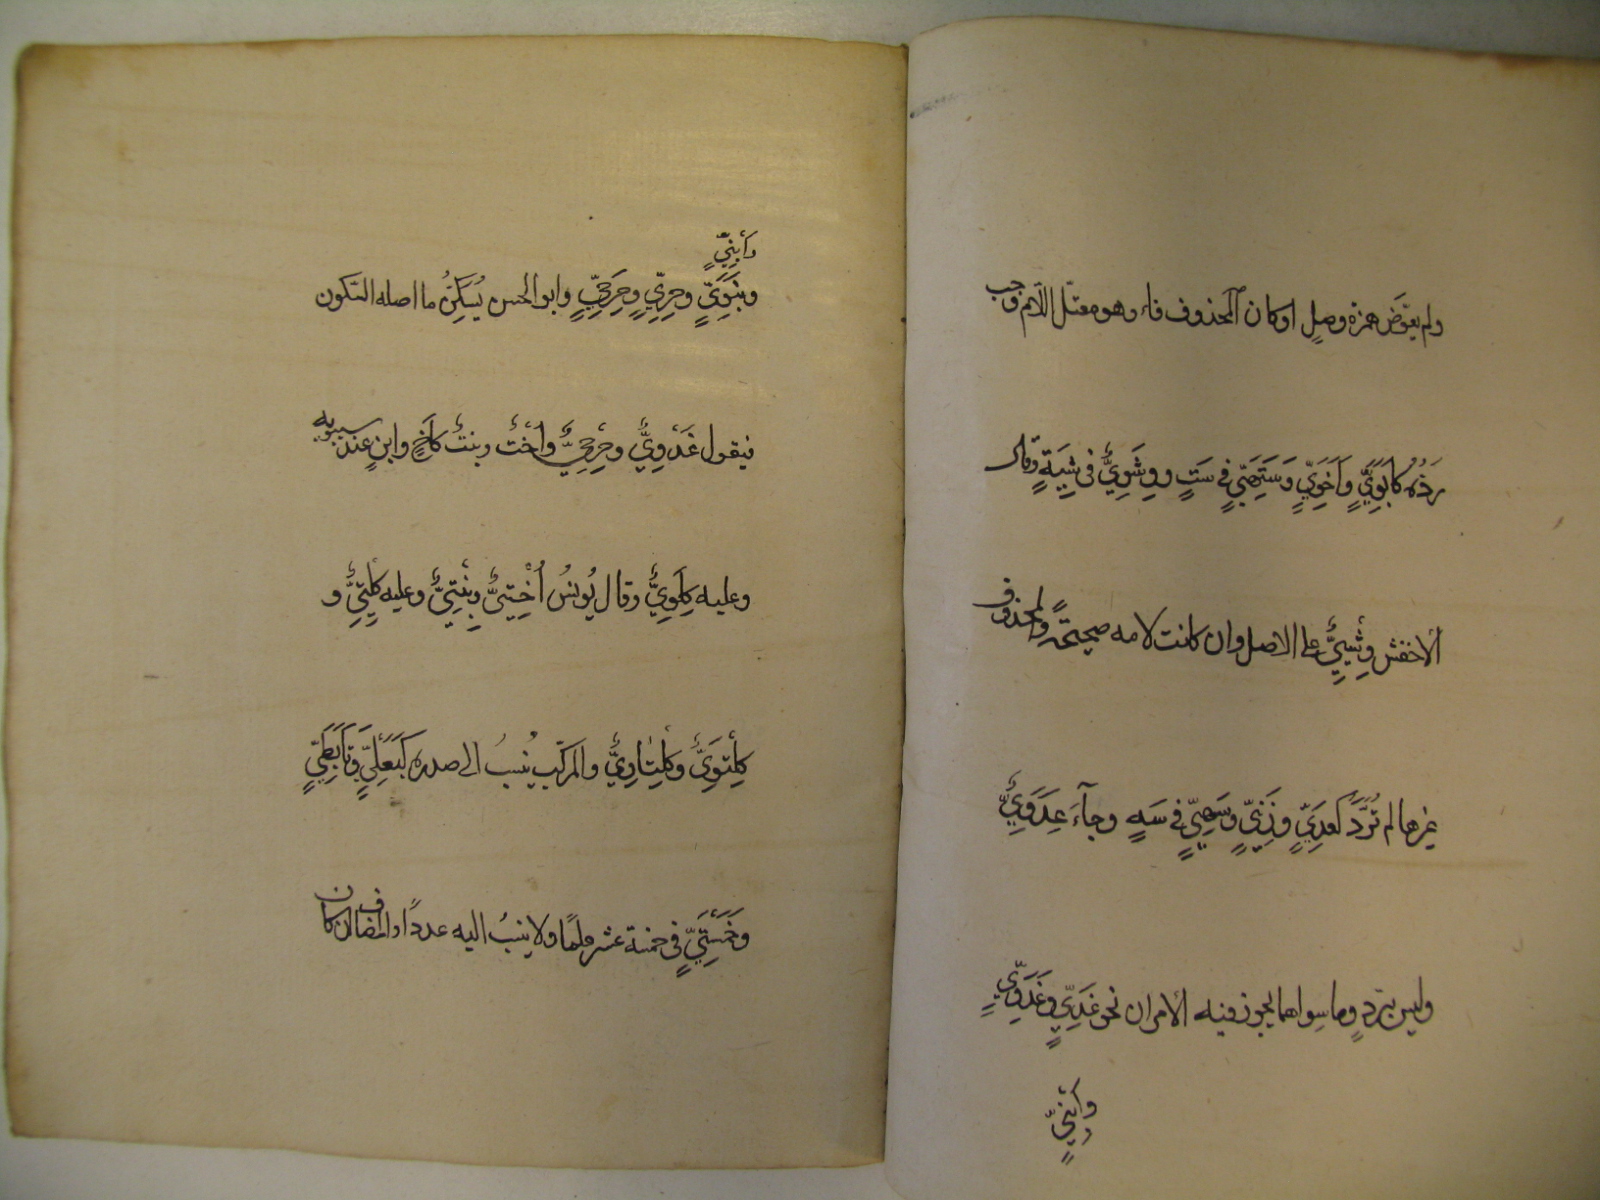 ولم يعوّض همزة وصلٍ او كان المحذوف فاء وهو معتلّ اللّام وجب
ردّه كابَوِيٍّ واَخَوِيٍّ وسَتَهِيٍّ في سَتٍ ووِشَوِيٌّ في شِيَةٍ وقال
الأخفش وِشْيِيٌّ على الاصل وان كانت لامه صحيحةً والمحذوف
غيرها لم تُرَدَّ كعِدِيٍّ وزِنِيٍّ وسَهِيٍّ في سَهٍ وجآء عِدَوِيٌّ
وليس بردٍّ وما سِواهما يجوز فيه الأمران نحو غَدِيٍّ وغَدَوِيٍّ
وابْنِيٍّ
وابْنِيٍّ
وبَنَوِيٍّ وحِرِيٍّ وحِرَحِيٍّ وابو الحسن يُسَكِّنُ ما اصله السّكون
فيقول غَدْوِيٌّ وحِرْحِيٌّ واُخْتٌ وبنتٌ كاَخٍ وابنٍ عند سيبويه
وعليه كِلَوِيٌّ وقال يُونسُ اُخْتِيٌّ وبِنْتِيٌّ وعليه كِلْتِيٌّ و
كِلْتَوِيٌّ وكِلْتَاوِيٌّ والمركّب يُنسبُ الى صدره كَبَعْلِيٍّ وتَأَبَّطِيٍّ
وخَمْسِيٍّ في خمسة عشر علمًا ولا ينسبُ اليه عددًا والمضاف ان كان